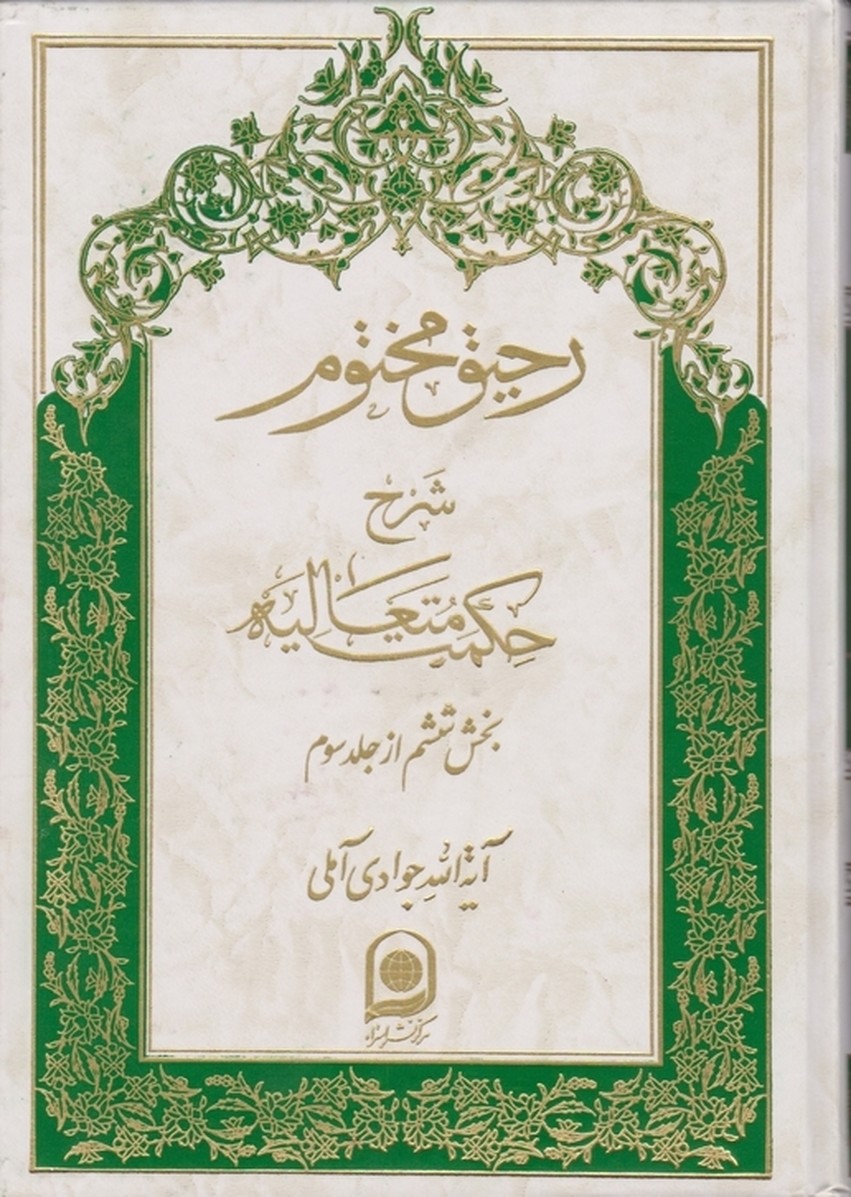 رحیق مختوم
شرح
حکمت متعالیه
بخش ششم از جلد سوم
آیة الله جوادی آملی
مرکز نشر اسراء